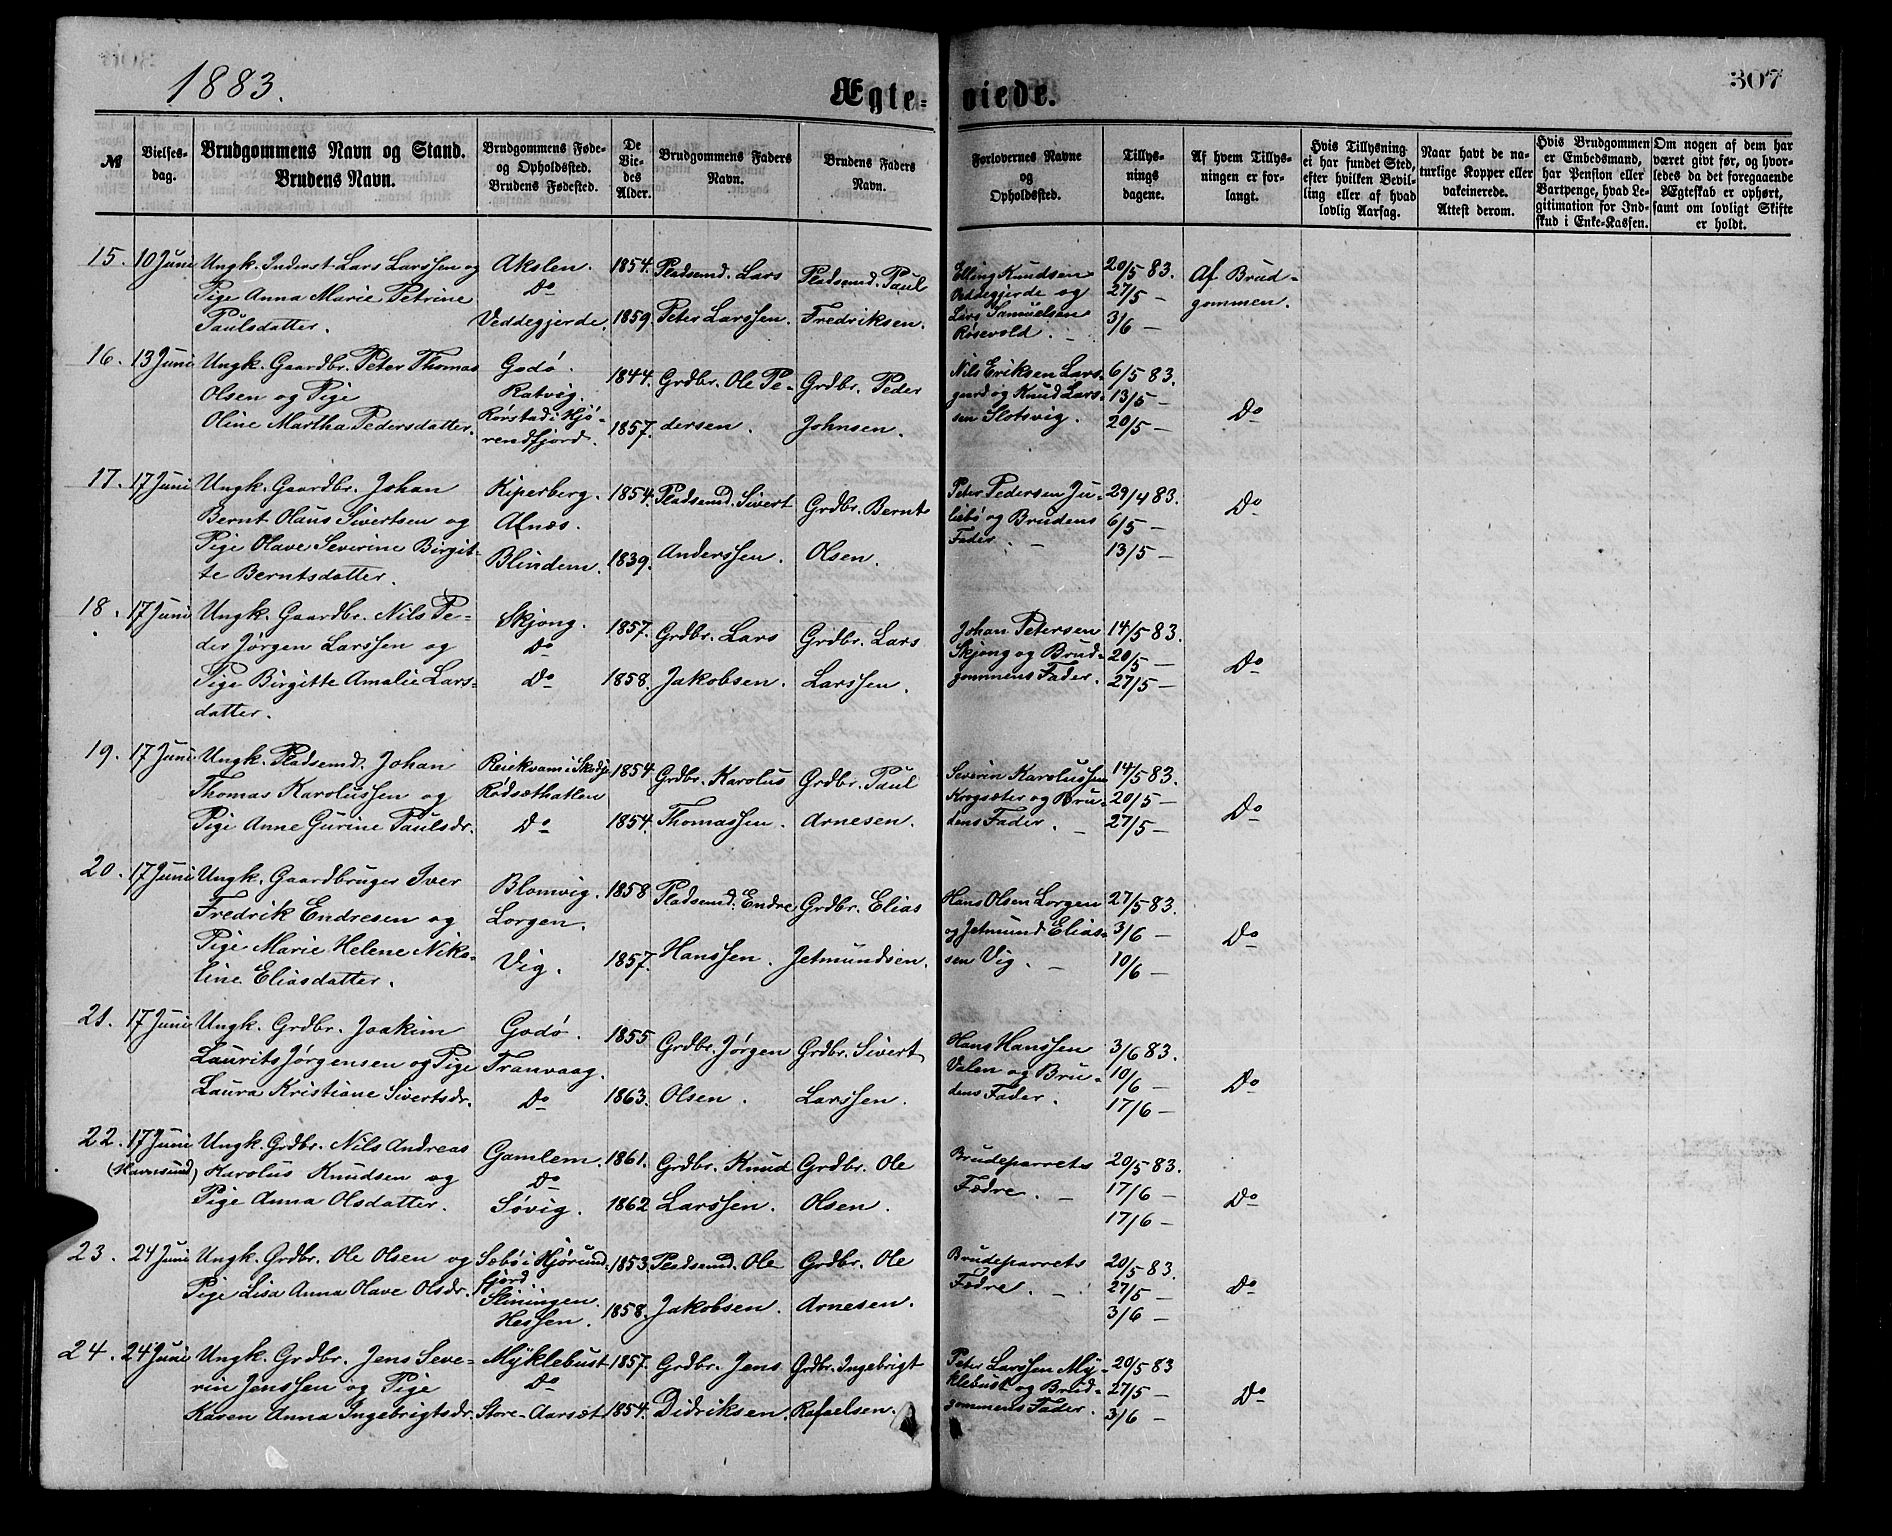 1883.
Ægte-viede.
307
№
Vielses-
dag.
Brudgommens Navn og Stand.
Brudens Navn.
Brudgommens Føde-
og Opholdssted.
Brudens Fødested.
De
Vie-
des
Alder.
Brudgommens Faders
Navn.
Brudens Faders
Navn.
Forlovernes Navne
og
Opholdssted.
Tillys-
nings
dagene.
Af hvem Tillys-
ningen er for-
langt.
Hvis Tillysning
ei har fundet Sted,
efter hvilken Bevil-
ling eller af hvad
lovlig Aarsag.
Naar havt de na-
turlige Kopper eller
vakcinerede.
Attest derom.
Hvis Brudgommen
er Embedsmand,
har Pension eller
Vartpenge, hvad Le-
gitimation for Ind-
skud i Enke-Kassen.
Om nogen af dem har
været givt før, og hvor-
ledes da det foregaaende
Ægteskab er ophørt,
samt om lovligt Skifte
er holdt.
15. 10 Juni
Ungk. Inderst Lars Larssen og
Pige Anna Marie Petrine
Paulsdatter.
Akslen.
Do
Veddegjerde.
1854.
1859.
Pladsmd. Lars
Peter Larssen.
Pladsmd. Paul
Fredriksen.
Elling Knudsen
Veddegjerde og
Lars Samuelsen
Røsevold.
20/5 83.
27/5 —
3/6 —
Af Brud-
gommen.
16. 13 Juni
Ungk. Gaardbr. Peter Thomas
Olsen og Pige
Oline Martha Pedersdatter.
Godø.
Ratvig.
Rørstad i Hjø-
rendfjord.
1844.
1857.
Grdbr. Ole Pe-
dersen.
Grdbr. Peder
Johnsen.
Nils Eriksen Lars-
gaard og Knud Lars-
sen Slotsvig.
6/5 83.
13/5 —
20/5 —
Do
17. 17 Juni
Ungk. Gaardbr. Johan
Bernt Olaus Sivertsen og
Pige Olave Severine Birgit-
te Berntsdatter.
Kiperberg.
Alnæs.
Blindem.
1854.
1839.
Pladsmd. Sivert
Anderssen.
Grdbr. Bernt
Olsen.
Peter Pedersen Ju-
liebø og Brudens
Fader. —
29/4 83.
6/5 —
13/5 —
Do
18. 17 Juni
Ungk. Gaardbr. Nils Pe-
der Jørgen Larssen og
Pige Birgitte Amalie Lars-
datter.
Skjong.
Do
Do
1857.
1858.
Grdbr. Lars
Jakobsen.
Grdbr. Lars
Larssen.
Johan Petersen
Skjong og Brud-
gommens Fader.
14/5 83.
20/5 —
27/5 —
Do
19. 17 Juni
Ungk. Pladsmd. Johan
Thomas Karolussen og
Pige Anne Gurine Paulsdr.
Reiekvam i Skodje
Rødsæthatlen
Do
1854
1854.
Grdbr. Karolus
Thomassen.
Grdbr. Paul
Arnesen.
Severin Karolussen
Krogsæter og Bru-
dens Fader. —
14/5 83.
20/5 —
27/5 —
Do
20. 17 Juni
Ungk. Gaardbruger Iver
Fredrik Endresen og
Pige Marie Helene Niko-
line Eliasdatter.
Blomvig.
Lorgen.
Vig.
1858
1857.
Pladsmd. Endre
Hanssen.
Grdbr. Elias
Jetmundsen.
Hans Olsen Lorgen
og Jetmund Elias-
sen Vig. —
27/5 83.
3/6 —
10/6 —
Do
21. 17 Juni
Ungk. Grdbr. Joakim
Laurits Jørgensen og Pige
Laura Kristiane Sivertsdr.
Godø.
Tranvaag.
Do
1855
1863.
Grdbr. Jørgen
Olsen.
Grdbr. Sivert
Larssen.
Hans Hanssen
Valen og Bru-
dens Fader.
3/6 83.
10/6 —
17/6 —
Do
22. 17 Juni
(Havnsund)
Ungk. Grdbr. Nils Andreas
Karolus Knudsen og
Pige Anna Olsdatter.
Gamlem.
Do
Søvig.
1861.
1862
Grdbr. Knud
Larssen.
Grdbr. Ole
Olsen.
Brudeparrets
Fædre. —
20/5 83.
17/6 —
17/6 —
Do
23. 24 Juni
Ungk. Grdbr. Ole Olsen og
Pige Lisa Anna Olave Olsdr.
Sæbø i Hjørund-
fjord
Sliningen.
Hessen.
1853.
1858.
Pladsmd. Ole
Jakobsen.
Grdbr. Ole
Arnesen.
Brudeparrets
Fædre. —
20/5 83.
27/5 —
3/6 —
Do
24. 24 Juni
Ungk. Grdbr. Jens Seve-
rin Jenssen og Pige
Karen Anna Ingebrigtsdr.
Myklebust
Do
Store-Aarsæt
1857.
1854.
Grdbr. Jens
Didriksen.
Grdbr. Ingebrigt
Rafaelsen.
Peter Larssen My-
klebust og Brud-
gommens Fader.
20/5 83
27/5 —
3/6 —
Do